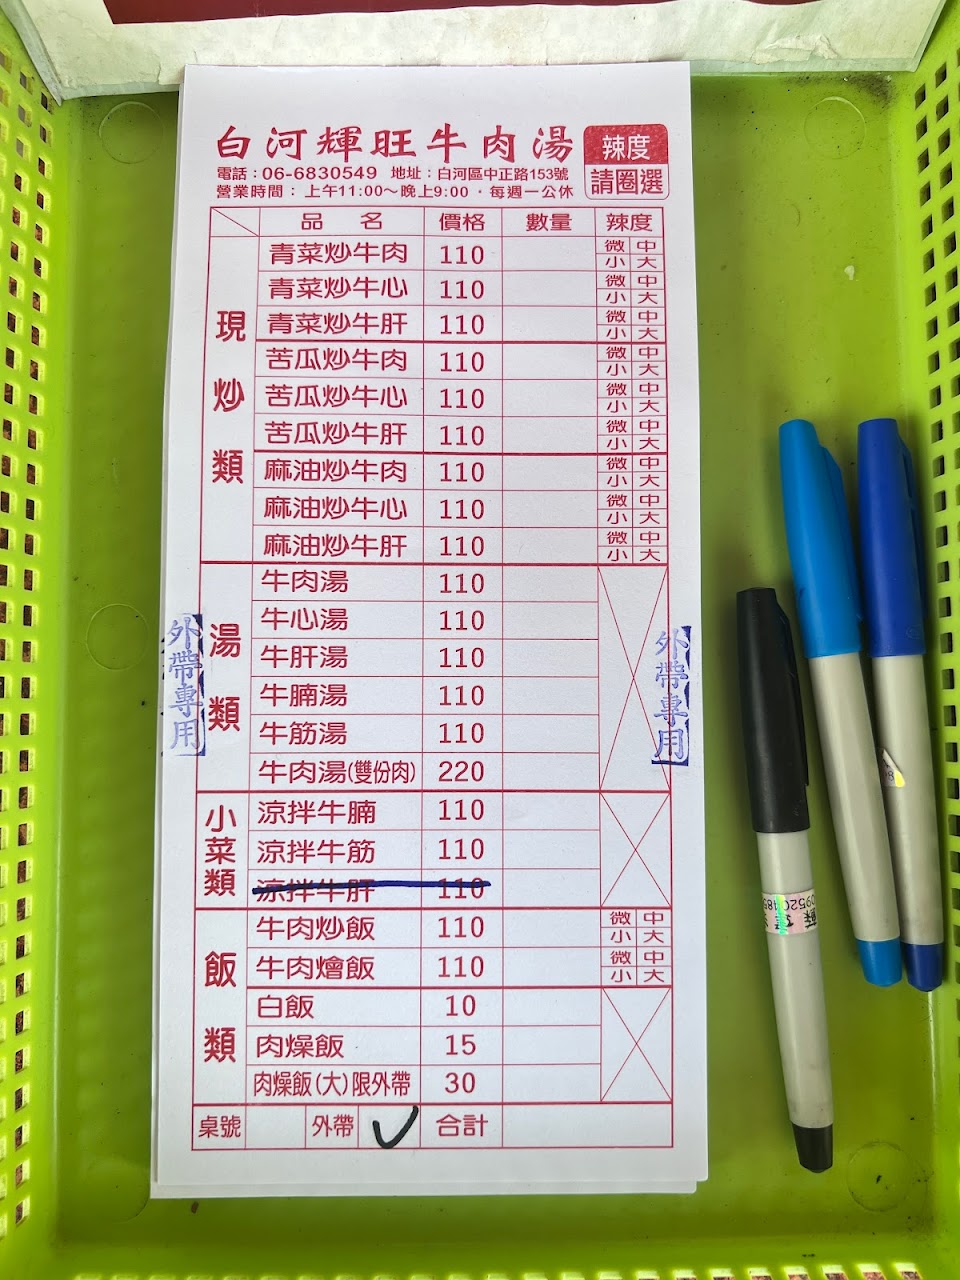 白河輝旺牛肉湯
辣度
請圈選
電話：06-6830549 地址：白河區中正路153號
營業時間：上午11:00～晚上9:00・每週一公休
品名 價格 數量 辣度
現炒類
青菜炒牛肉 110 微 中 小 大
青菜炒牛心 110 微 中 小 大
青菜炒牛肝 110 微 中 小 大
苦瓜炒牛肉 110 微 中 小 大
苦瓜炒牛心 110 微 中 小 大
苦瓜炒牛肝 110 微 中 小 大
麻油炒牛肉 110 微 中 小 大
麻油炒牛心 110 微 中 小 大
麻油炒牛肝 110 微 中 小 大
湯類
牛肉湯 110
牛心湯 110
牛肝湯 110
牛腩湯 110
牛筋湯 110
牛肉湯(雙份肉) 220
外帶專用
外帶專用
小菜類
涼拌牛腩 110
涼拌牛筋 110
涼拌牛肝 110
飯類
牛肉炒飯 110 微 中 小 大
牛肉燴飯 110 微 中 小 大
白飯 10
肉燥飯 15
肉燥飯(大)限外帶 30
桌號 外帶 ✓ 合計